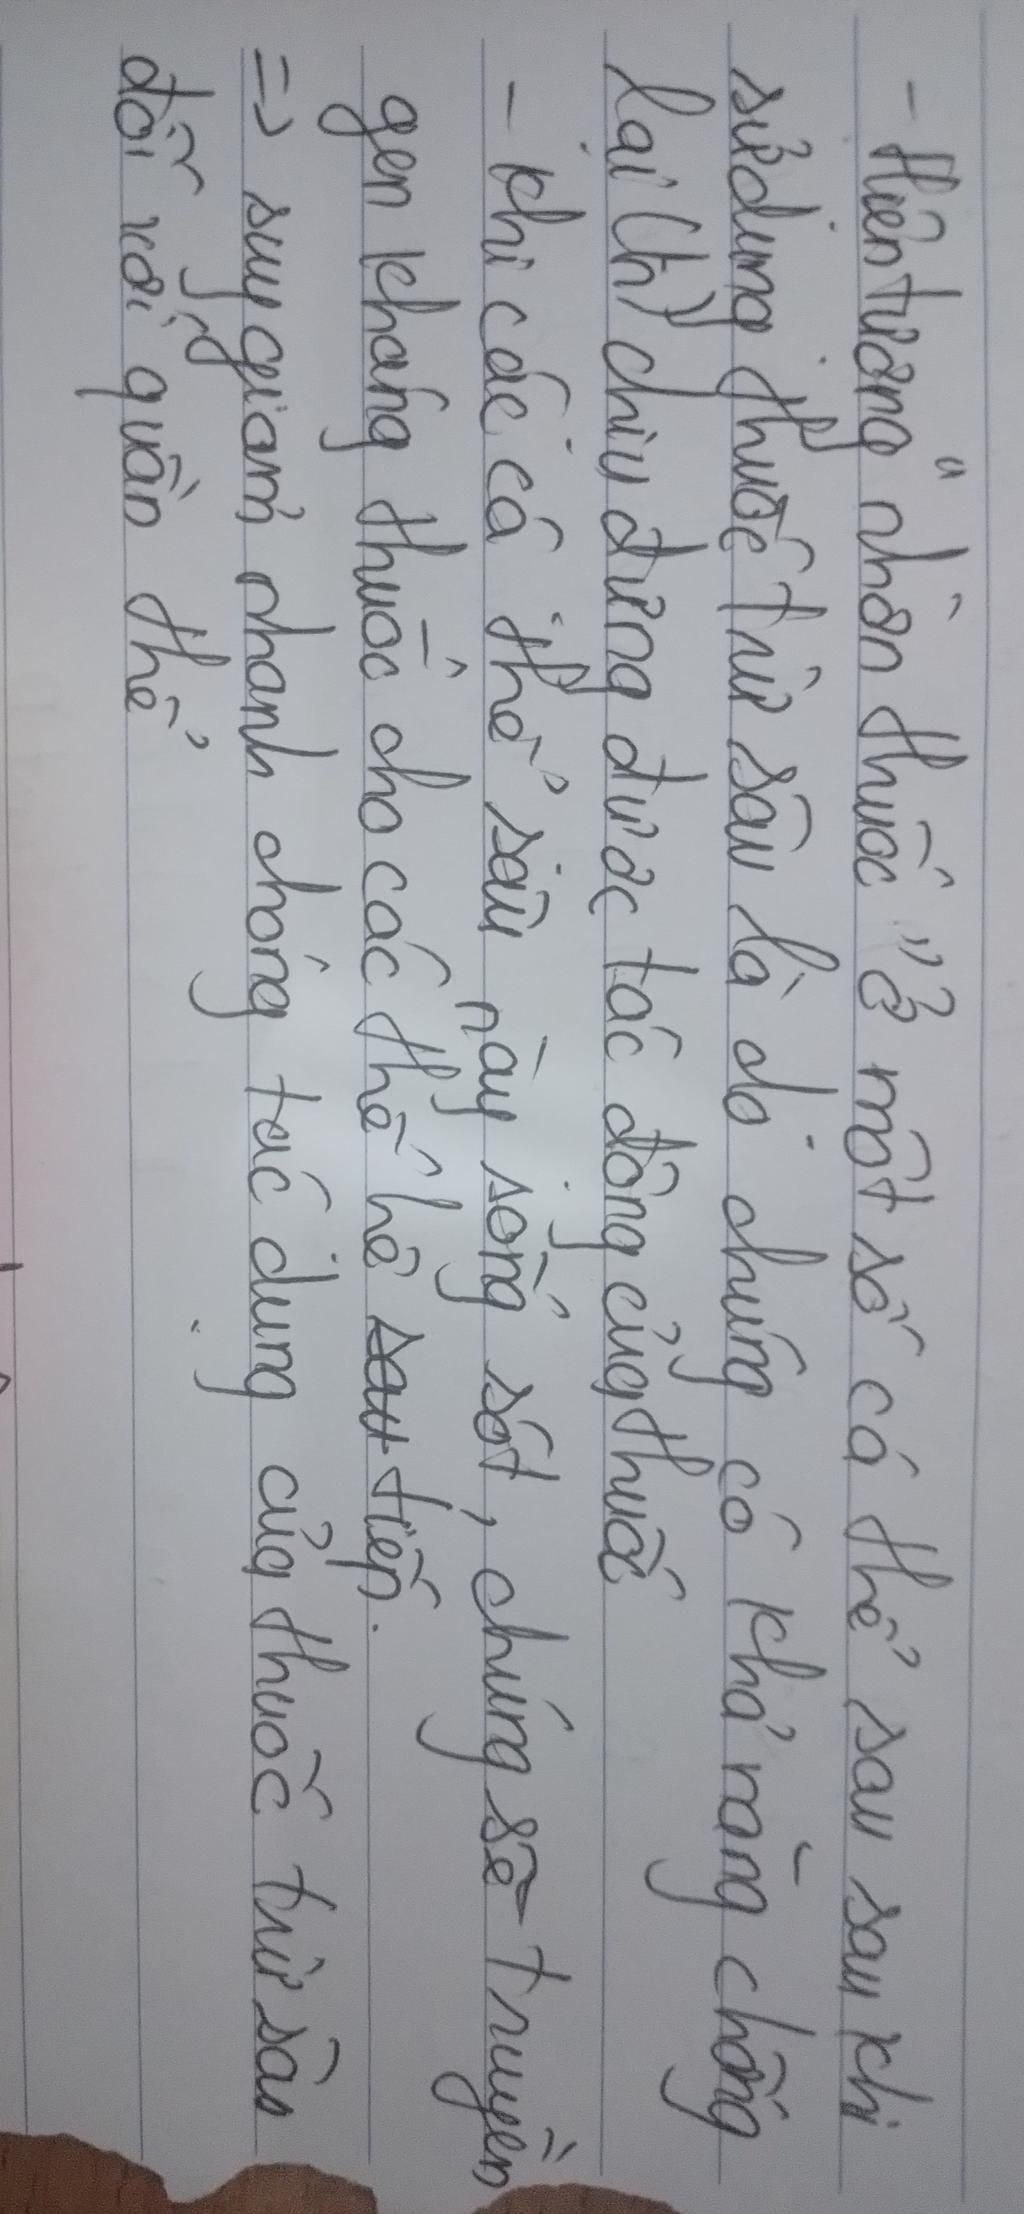 - Hiện tượng "nhờn thuốc" ở một số cá thể sau sau khi
sử dụng thuốc trừ sâu là do chúng có khả năng chống
lại (h) chịu đựng được tác động của thuốc
- Khi các cá thể sâu này sống sót, chúng sẽ truyền
gen kháng thuốc cho các thế hệ sau tiếp.
=> suy giảm nhanh chóng tác dụng của thuốc trừ sâu
đối với quần thể